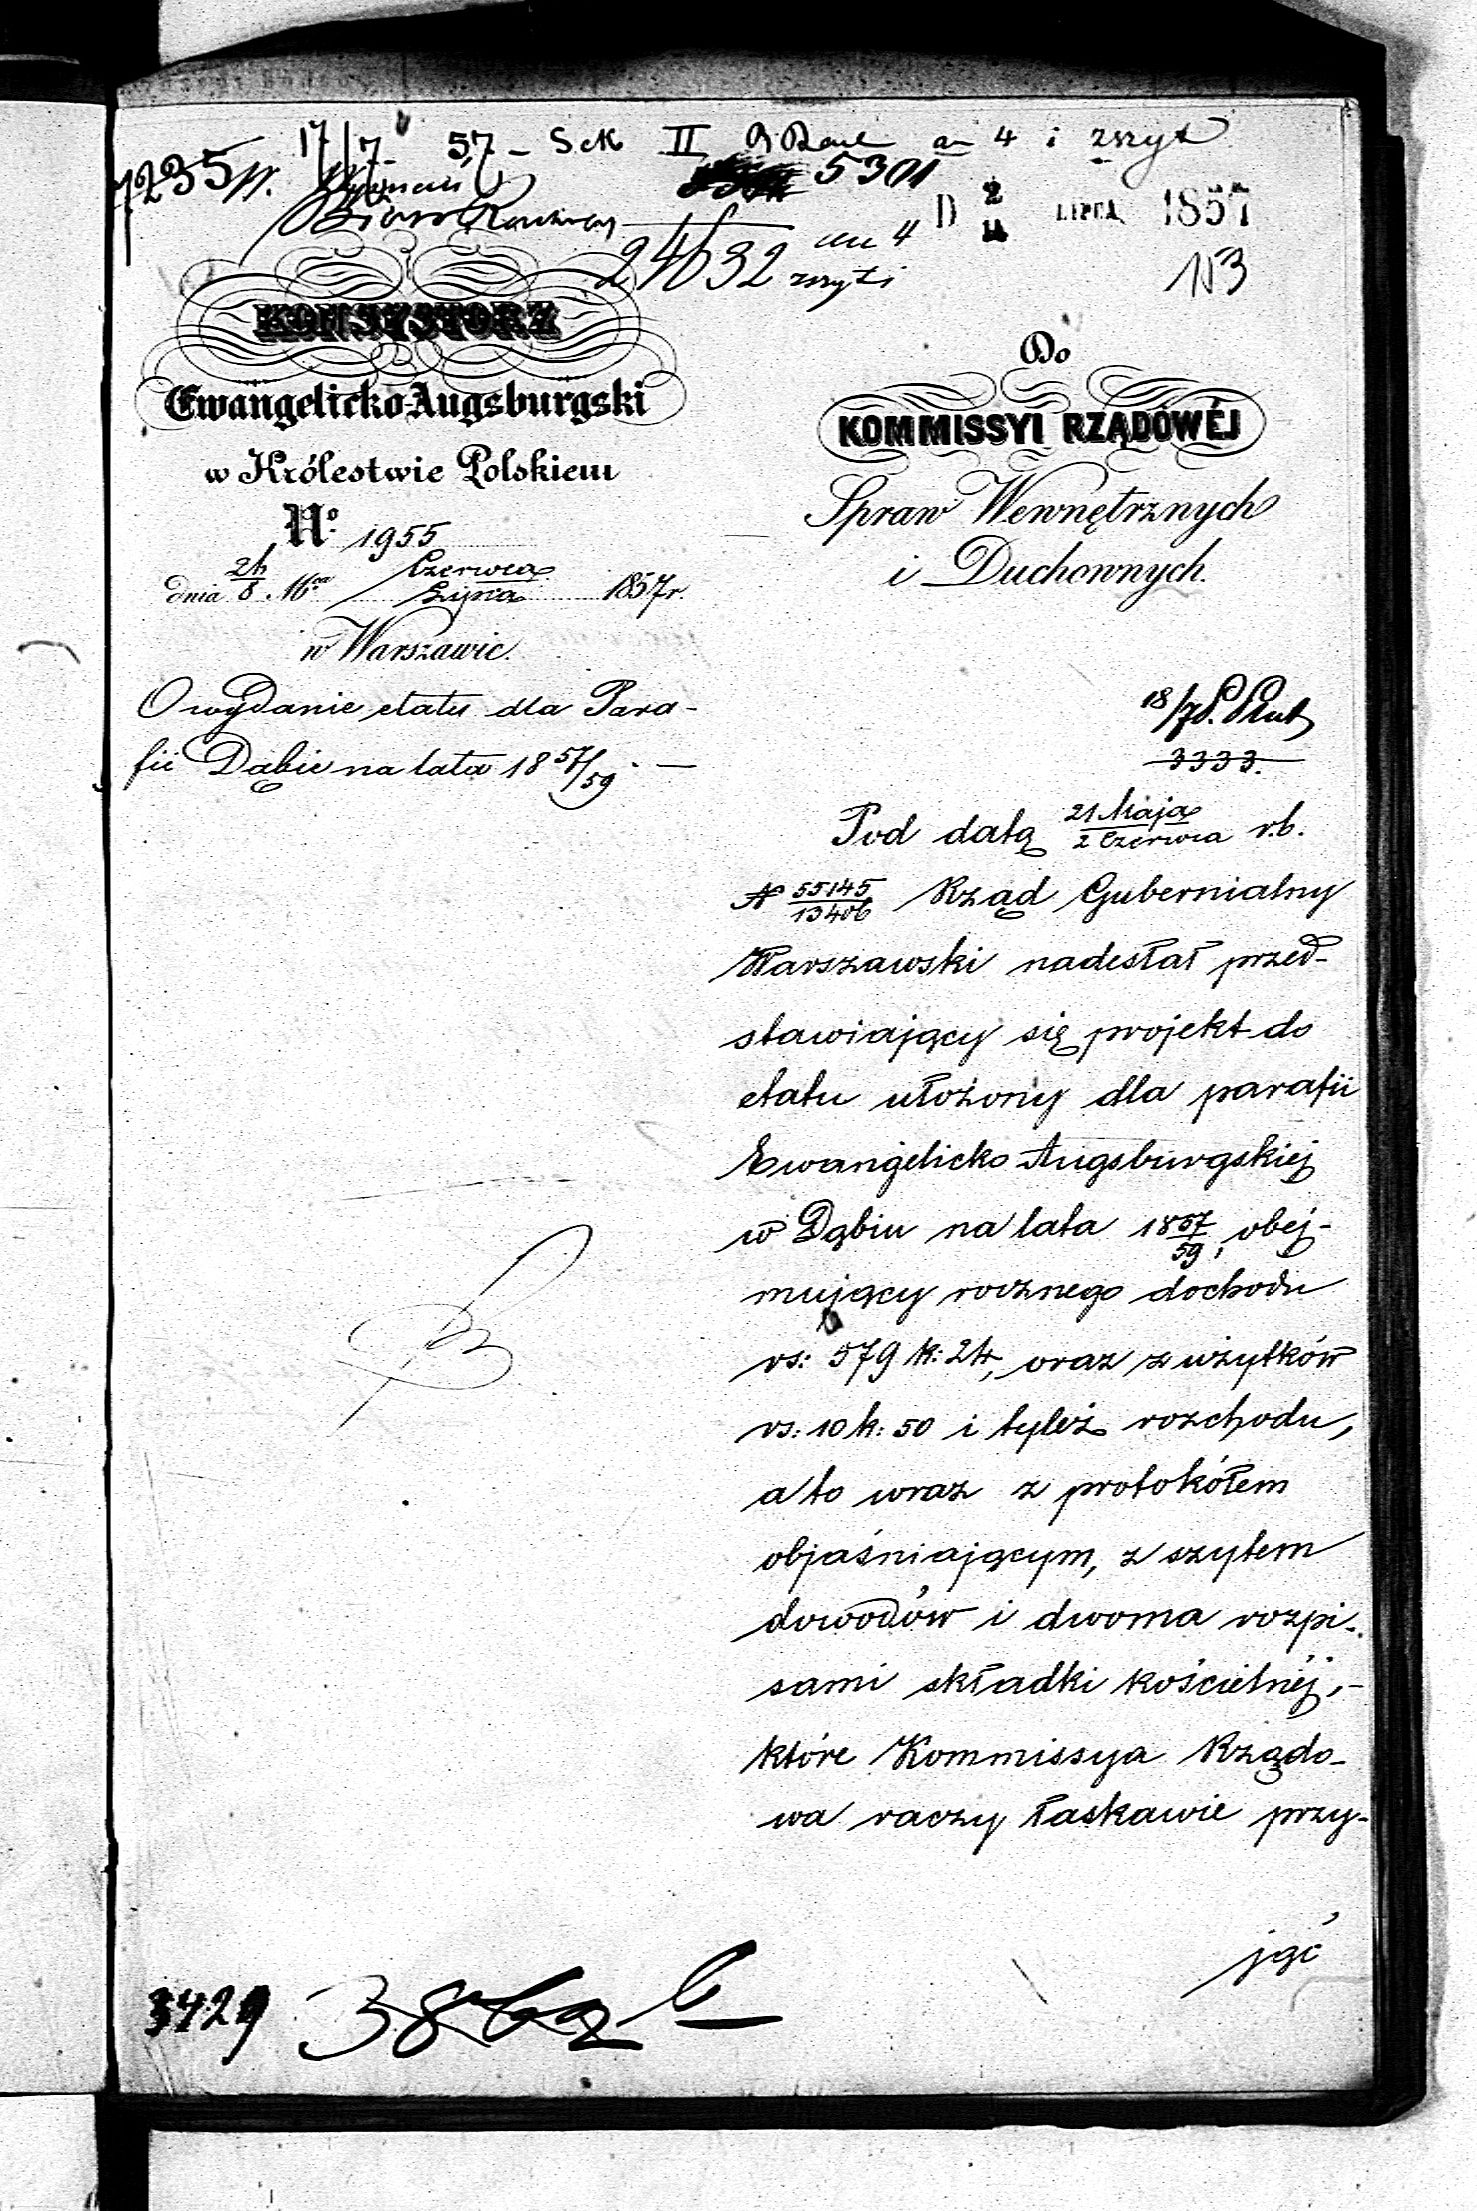 17/7 57 - Sek II an 4 i zszyt
7235
5301
24632 an 4
zszyti
D 2/14 LIPCA 1857
153
KONSYSTORZ
Ewangelicko Augsburgski
w Królestwie Polskiem
No. 1955
dnia 24/6 Mca Czerwca/Lipca 1857 r.
w Warszawie.
O wydanie etatu dla Para-
fii Dąbie na lata 18 57/59. —
Do
KOMMISSYI RZĄDOWÉJ
Spraw Wewnętrznych
i Duchownych.
18/7
3333.
Pod datą 21 Maja/2 Czerwca r.b.
N 55145/13406 Rząd Gubernialny
Warszawski nadesłał przed-
stawiający się projekt do
etatu ułożony dla parafii
Ewangelicko Augsburgskiej
w Dąbiu na lata 18 57/59, obej-
mujący rocznego dochodu
rs: 579 k: 24, oraz z użytków
rs: 10 k: 50 i tyleż rozchodu,
a to wraz z protokółem
objaśniającym, z szytem
dowodów i dwoma rozpi-
sami składki kościelnéj,-
które Kommissya Rządo-
wa raczy łaskawie przy-
jąć
3429